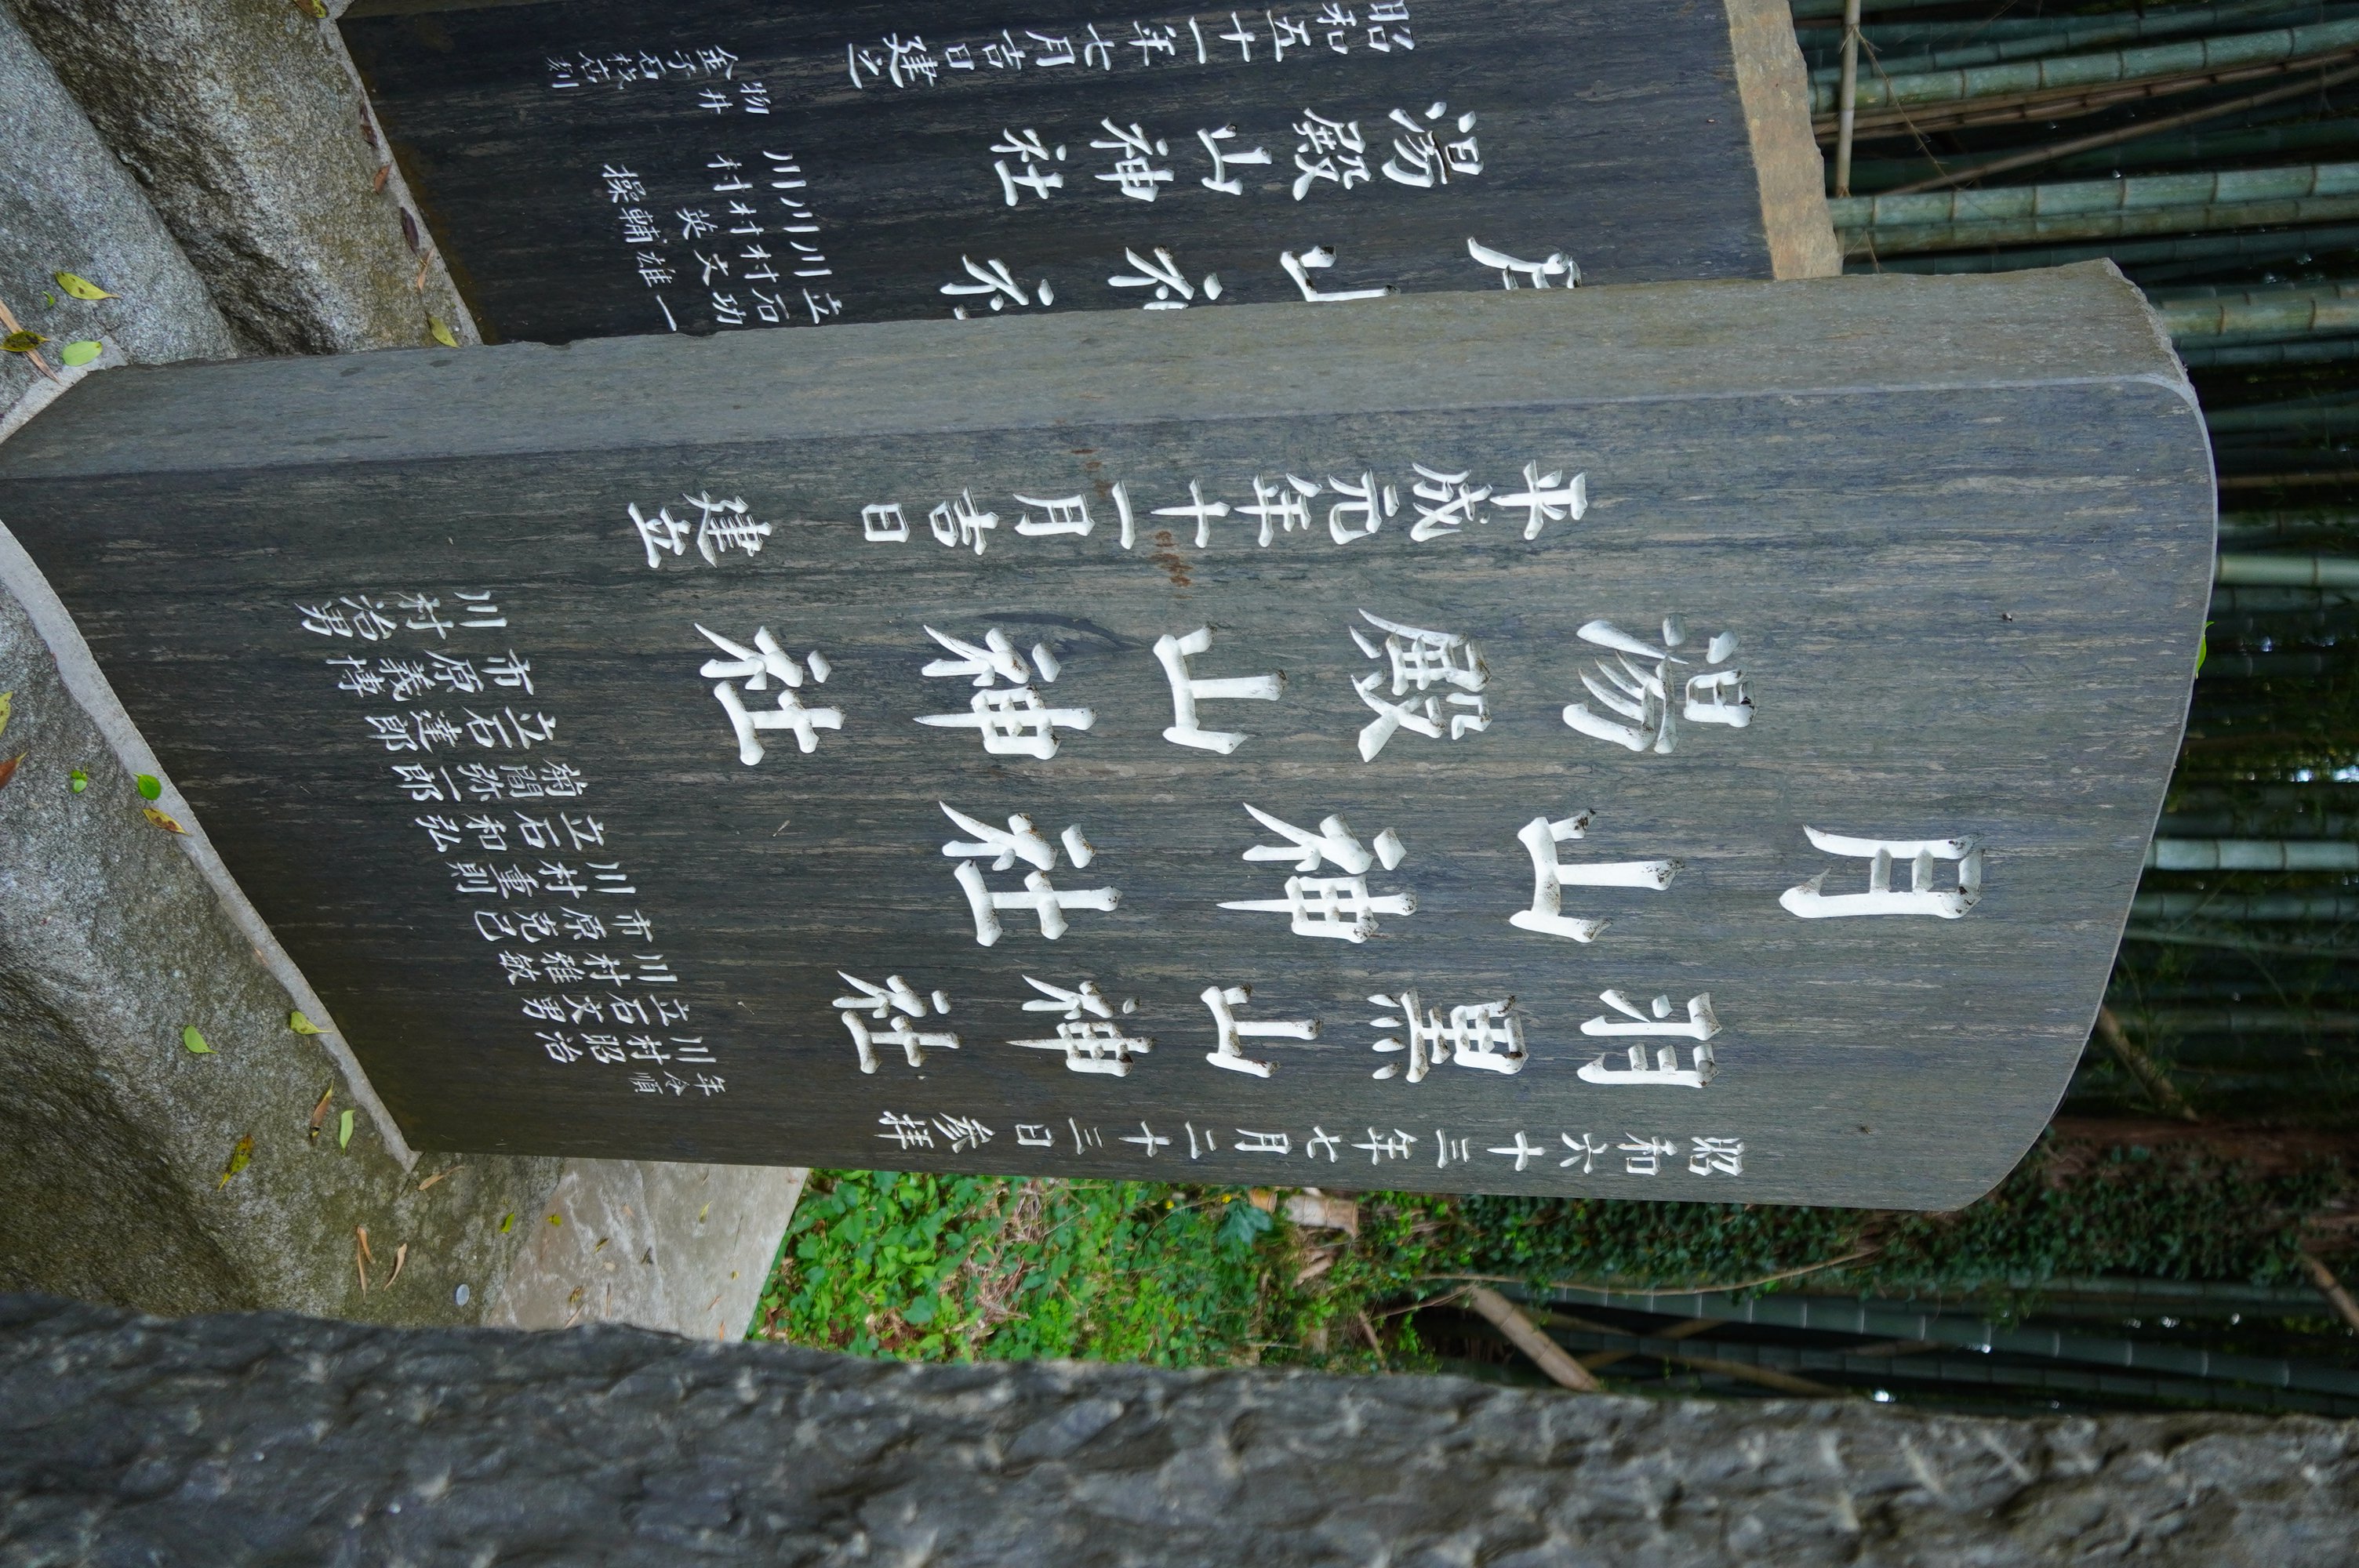 昭和六十三年七月二十三日参拝
羽黒山神社
月山神社
湯殿山神社
平成元年十一月吉日建立
年令順
川村昭治
立石文男
川村雅敏
市原克己
川村重則
立石和弘
菊間弥一郎
立石達郎
市原義博
川村治男
湯殿山神社
昭和五十一年七月吉日建之
立石功一
川村文雄
川村英輔
川村操
物井
金子石材店刻